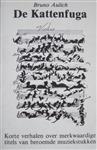 Bruno Aulich
De Kattenfuga
Korte verhalen over merkwaardige
titels van beroemde muziekstukken